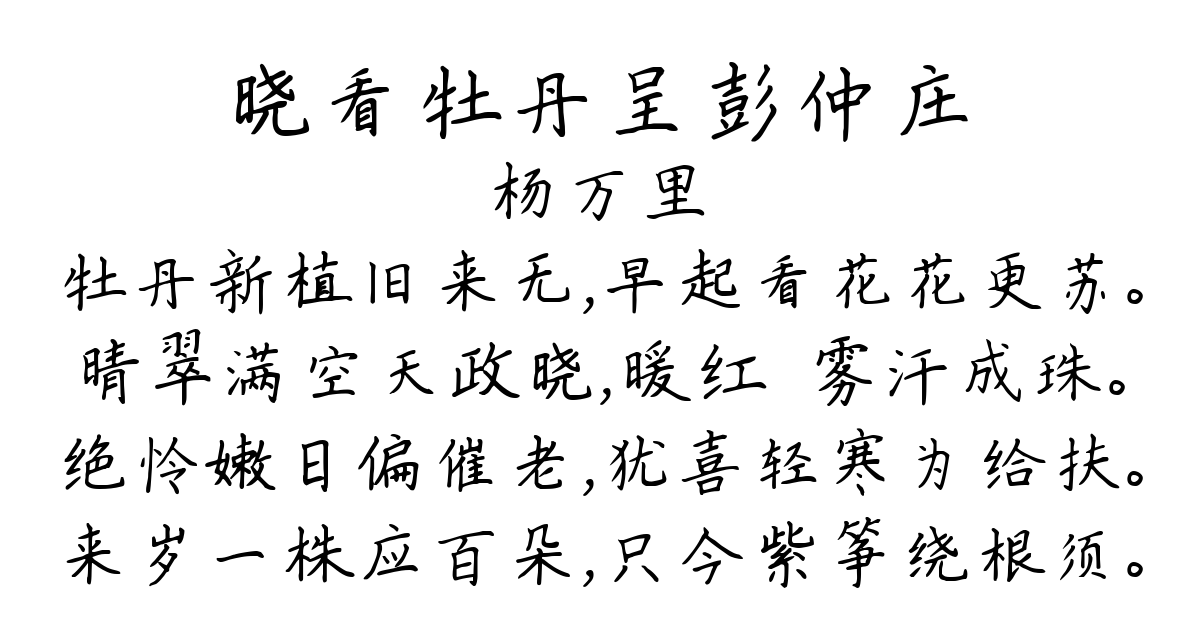 晓看牡丹呈彭仲庄
杨万里
牡丹新植旧来无,早起看花花更苏。
晴翠满空天政晓,暖红 雾汗成珠。
绝怜嫩日偏催老,犹喜轻寒为给扶。
来岁一株应百朵,只今紫筝绕根须。